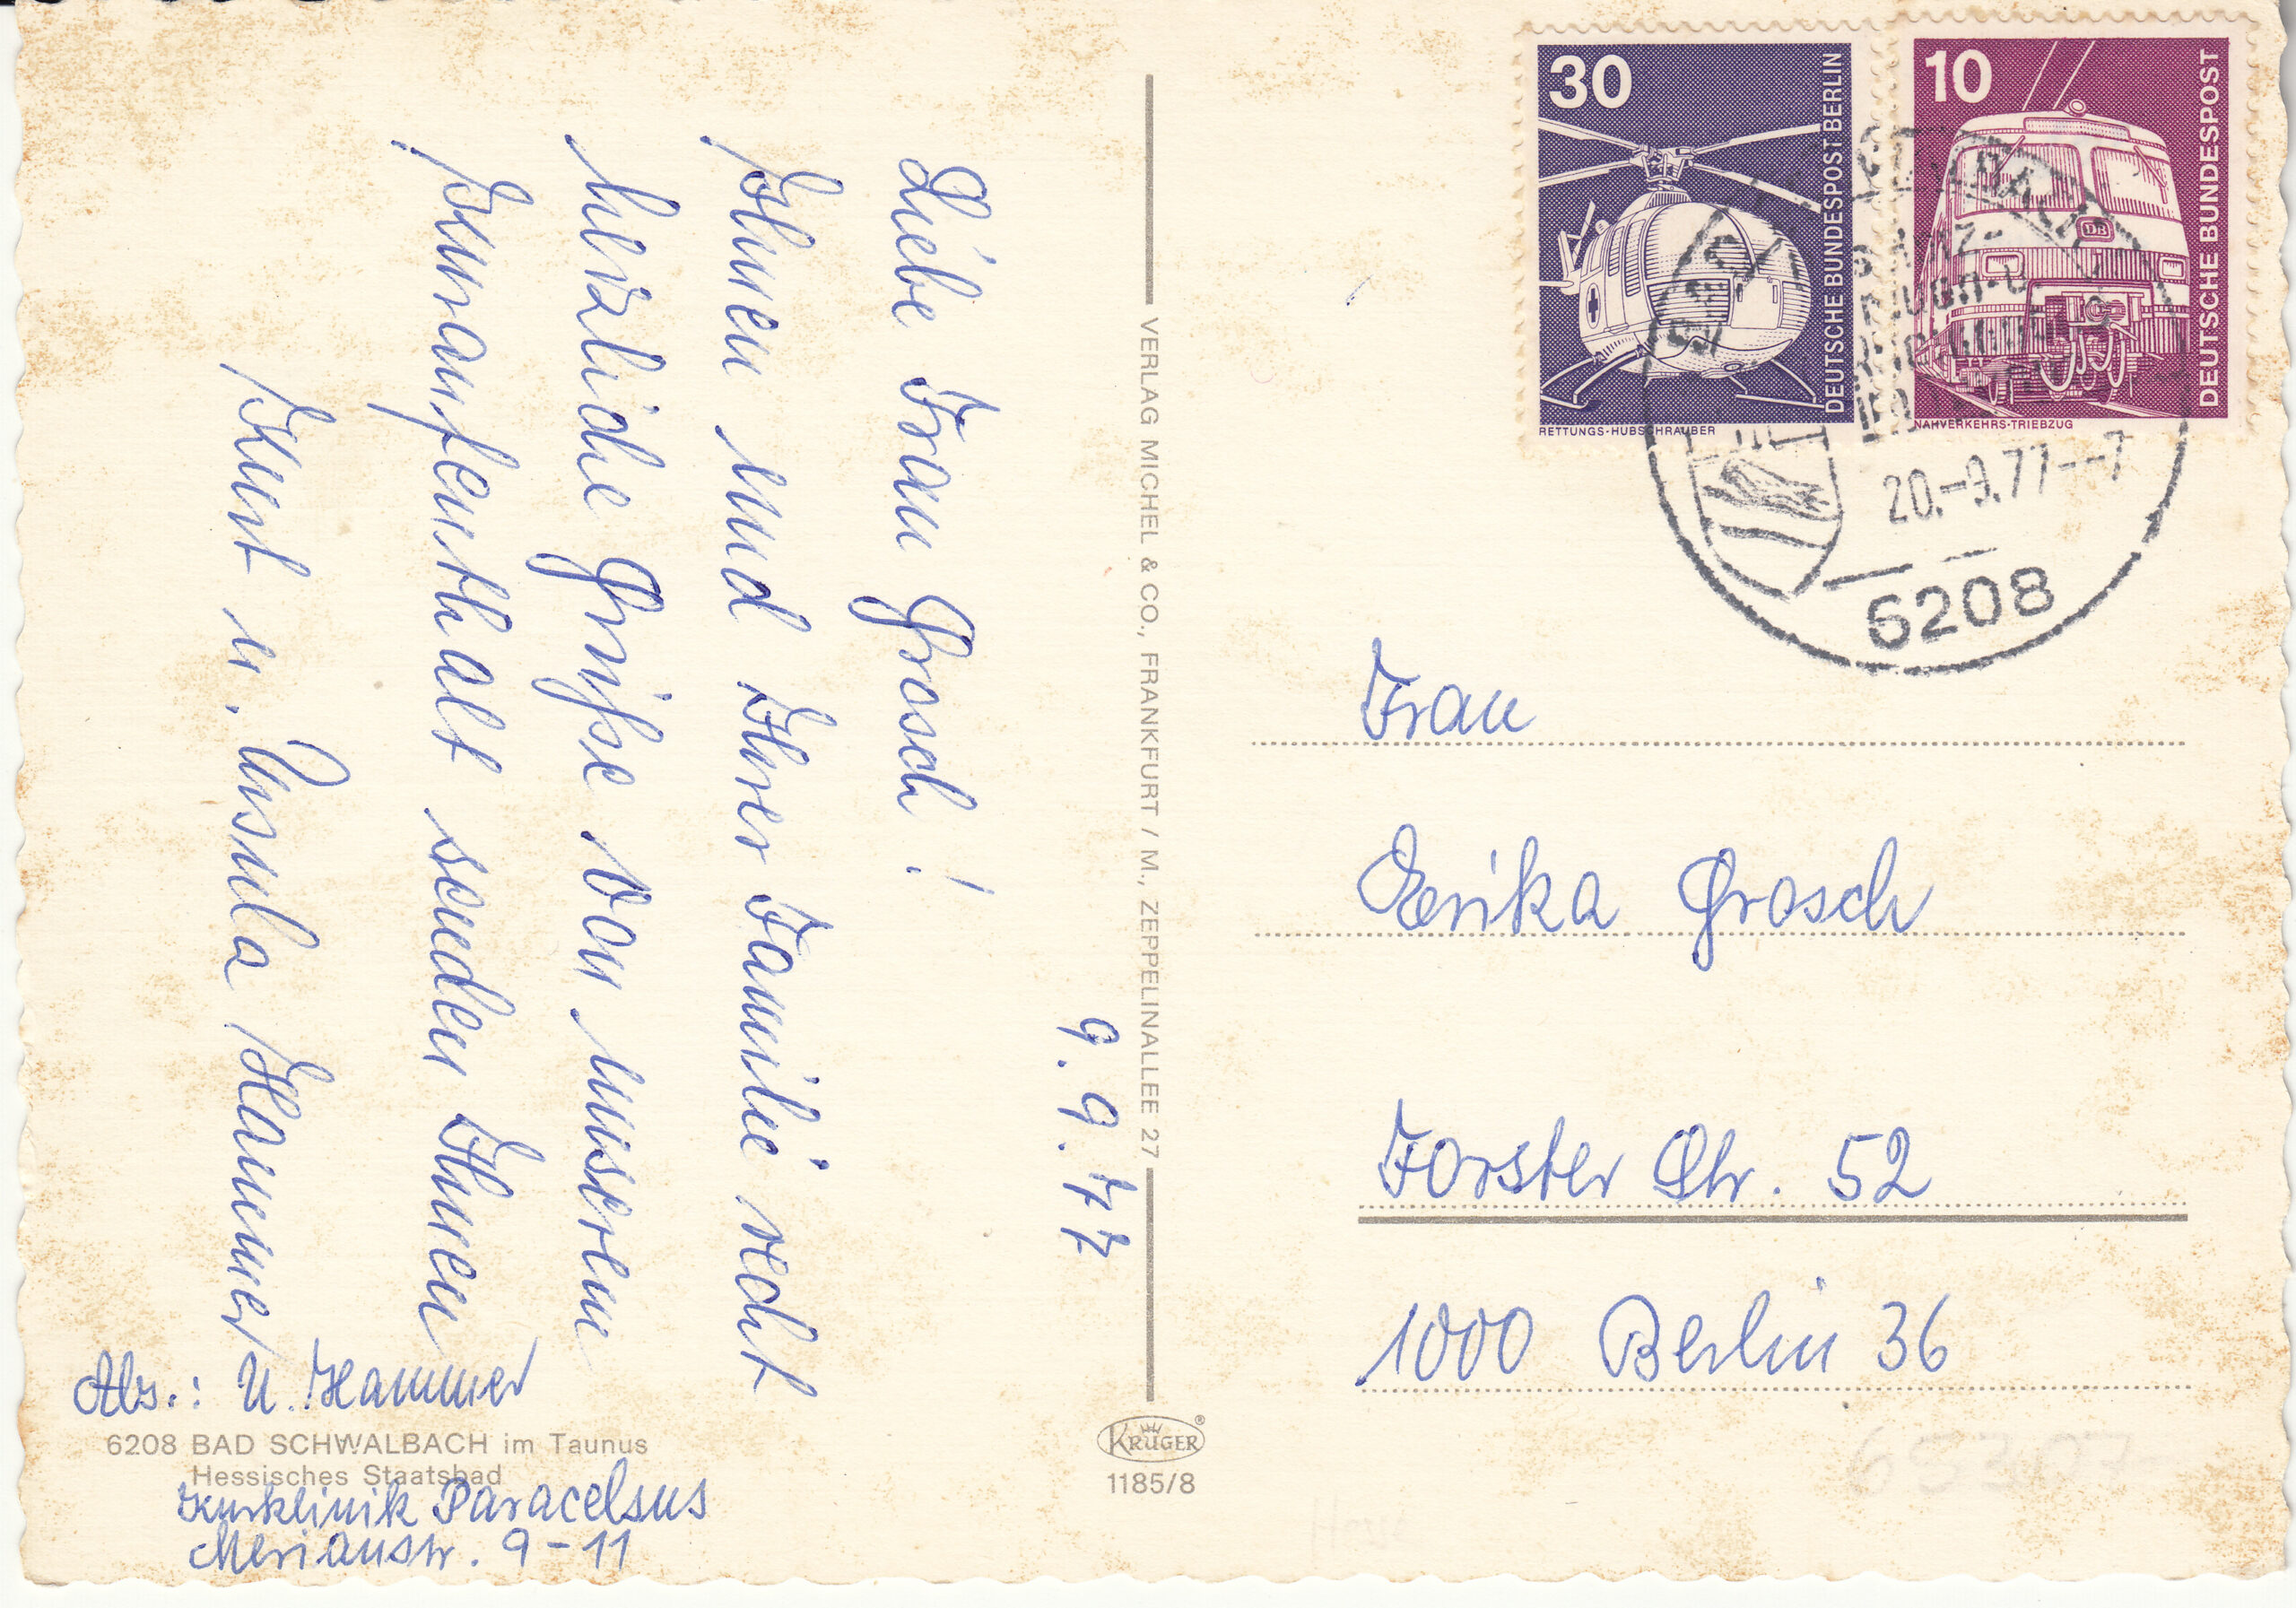 9.9.77
Liebe Frau Grosch!
Ihnen und Ihrer Familie recht
herzliche Grüsse von unserem
Kuraufenthalt senden Ihnen
Kurt u. Ursula Hammer
Abs.: U. Hammer
6208 BAD SCHWALBACH im Taunus
Hessisches Staatsbad
Kurklinik Paracelsus
Merianstr. 9-11
VERLAG MICHEL & CO., FRANKFURT / M., ZEPPELINALLEE 27
KRÜGER ®
1185/8
30
DEUTSCHE BUNDESPOST BERLIN
RETTUNGS-HUBSCHRAUBER
10
DEUTSCHE BUNDESPOST
NAHVERKEHRS-TRIEBZUG
BAD SCHWALBACH
20.-9.77--7
6208
Frau
Erika Grosch
Forster Str. 52
1000 Berlin 36